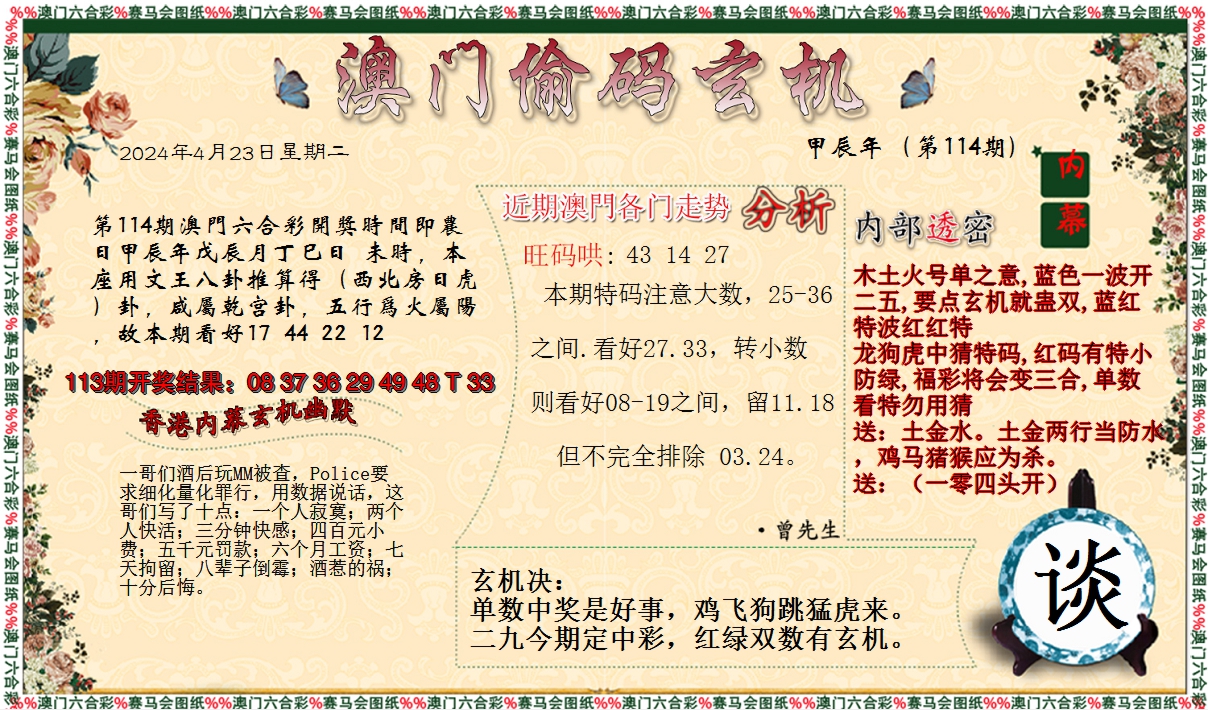 %%澳门六合彩%赛马会图纸%%澳门六合彩%赛马会图纸%%澳门六合彩%赛马会图纸%%澳门六合彩%赛马会图纸%%澳门六合彩%赛马会图纸%%澳门六合彩%赛马会图纸%%
澳门偷码玄机
2024年4月23日星期二
甲辰年（第114期）
第114期澳門六合彩開獎時間即農
日甲辰年戊辰月丁巳日 未時，本
座用文王八卦推算得（西北房日虎
）卦，咸屬乾宫卦，五行爲火屬陽
，故本期看好17 44 22 12
113期开奖结果：08 37 36 29 49 48 T 33
香港内幕玄机幽默
一哥们酒后玩MM被查，Police要
求细化量化罪行，用数据说话，这
哥们写了十点：一个人寂寞；两个
人快活；三分钟快感；四百元小
费；五千元罚款；六个月工资；七
天拘留；八辈子倒霉；酒惹的祸；
十分后悔。
近期澳門各门走势 分析
旺码哄: 43 14 27
本期特码注意大数，25-36
之间.看好27.33，转小数
则看好08-19之间，留11.18
但不完全排除 03.24。
·曾先生
玄机决：
单数中奖是好事，鸡飞狗跳猛虎来。
二九今期定中彩，红绿双数有玄机。
内幕
内部透密
木土火号单之意,蓝色一波开
二五,要点玄机就蛊双,蓝红
特波红红特
龙狗虎中猜特码,红码有特小
防绿,福彩将会变三合,单数
看特勿用猜
送：土金水。土金两行当防水
，鸡马猪猴应为杀。
送：（一零四头开）
谈
%%澳门六合彩%赛马会图纸%%澳门六合彩%赛马会图纸%%澳门六合彩%赛马会图纸%%澳门六合彩%赛马会图纸%%澳门六合彩%赛马会图纸%%澳门六合彩%赛马会图纸%%